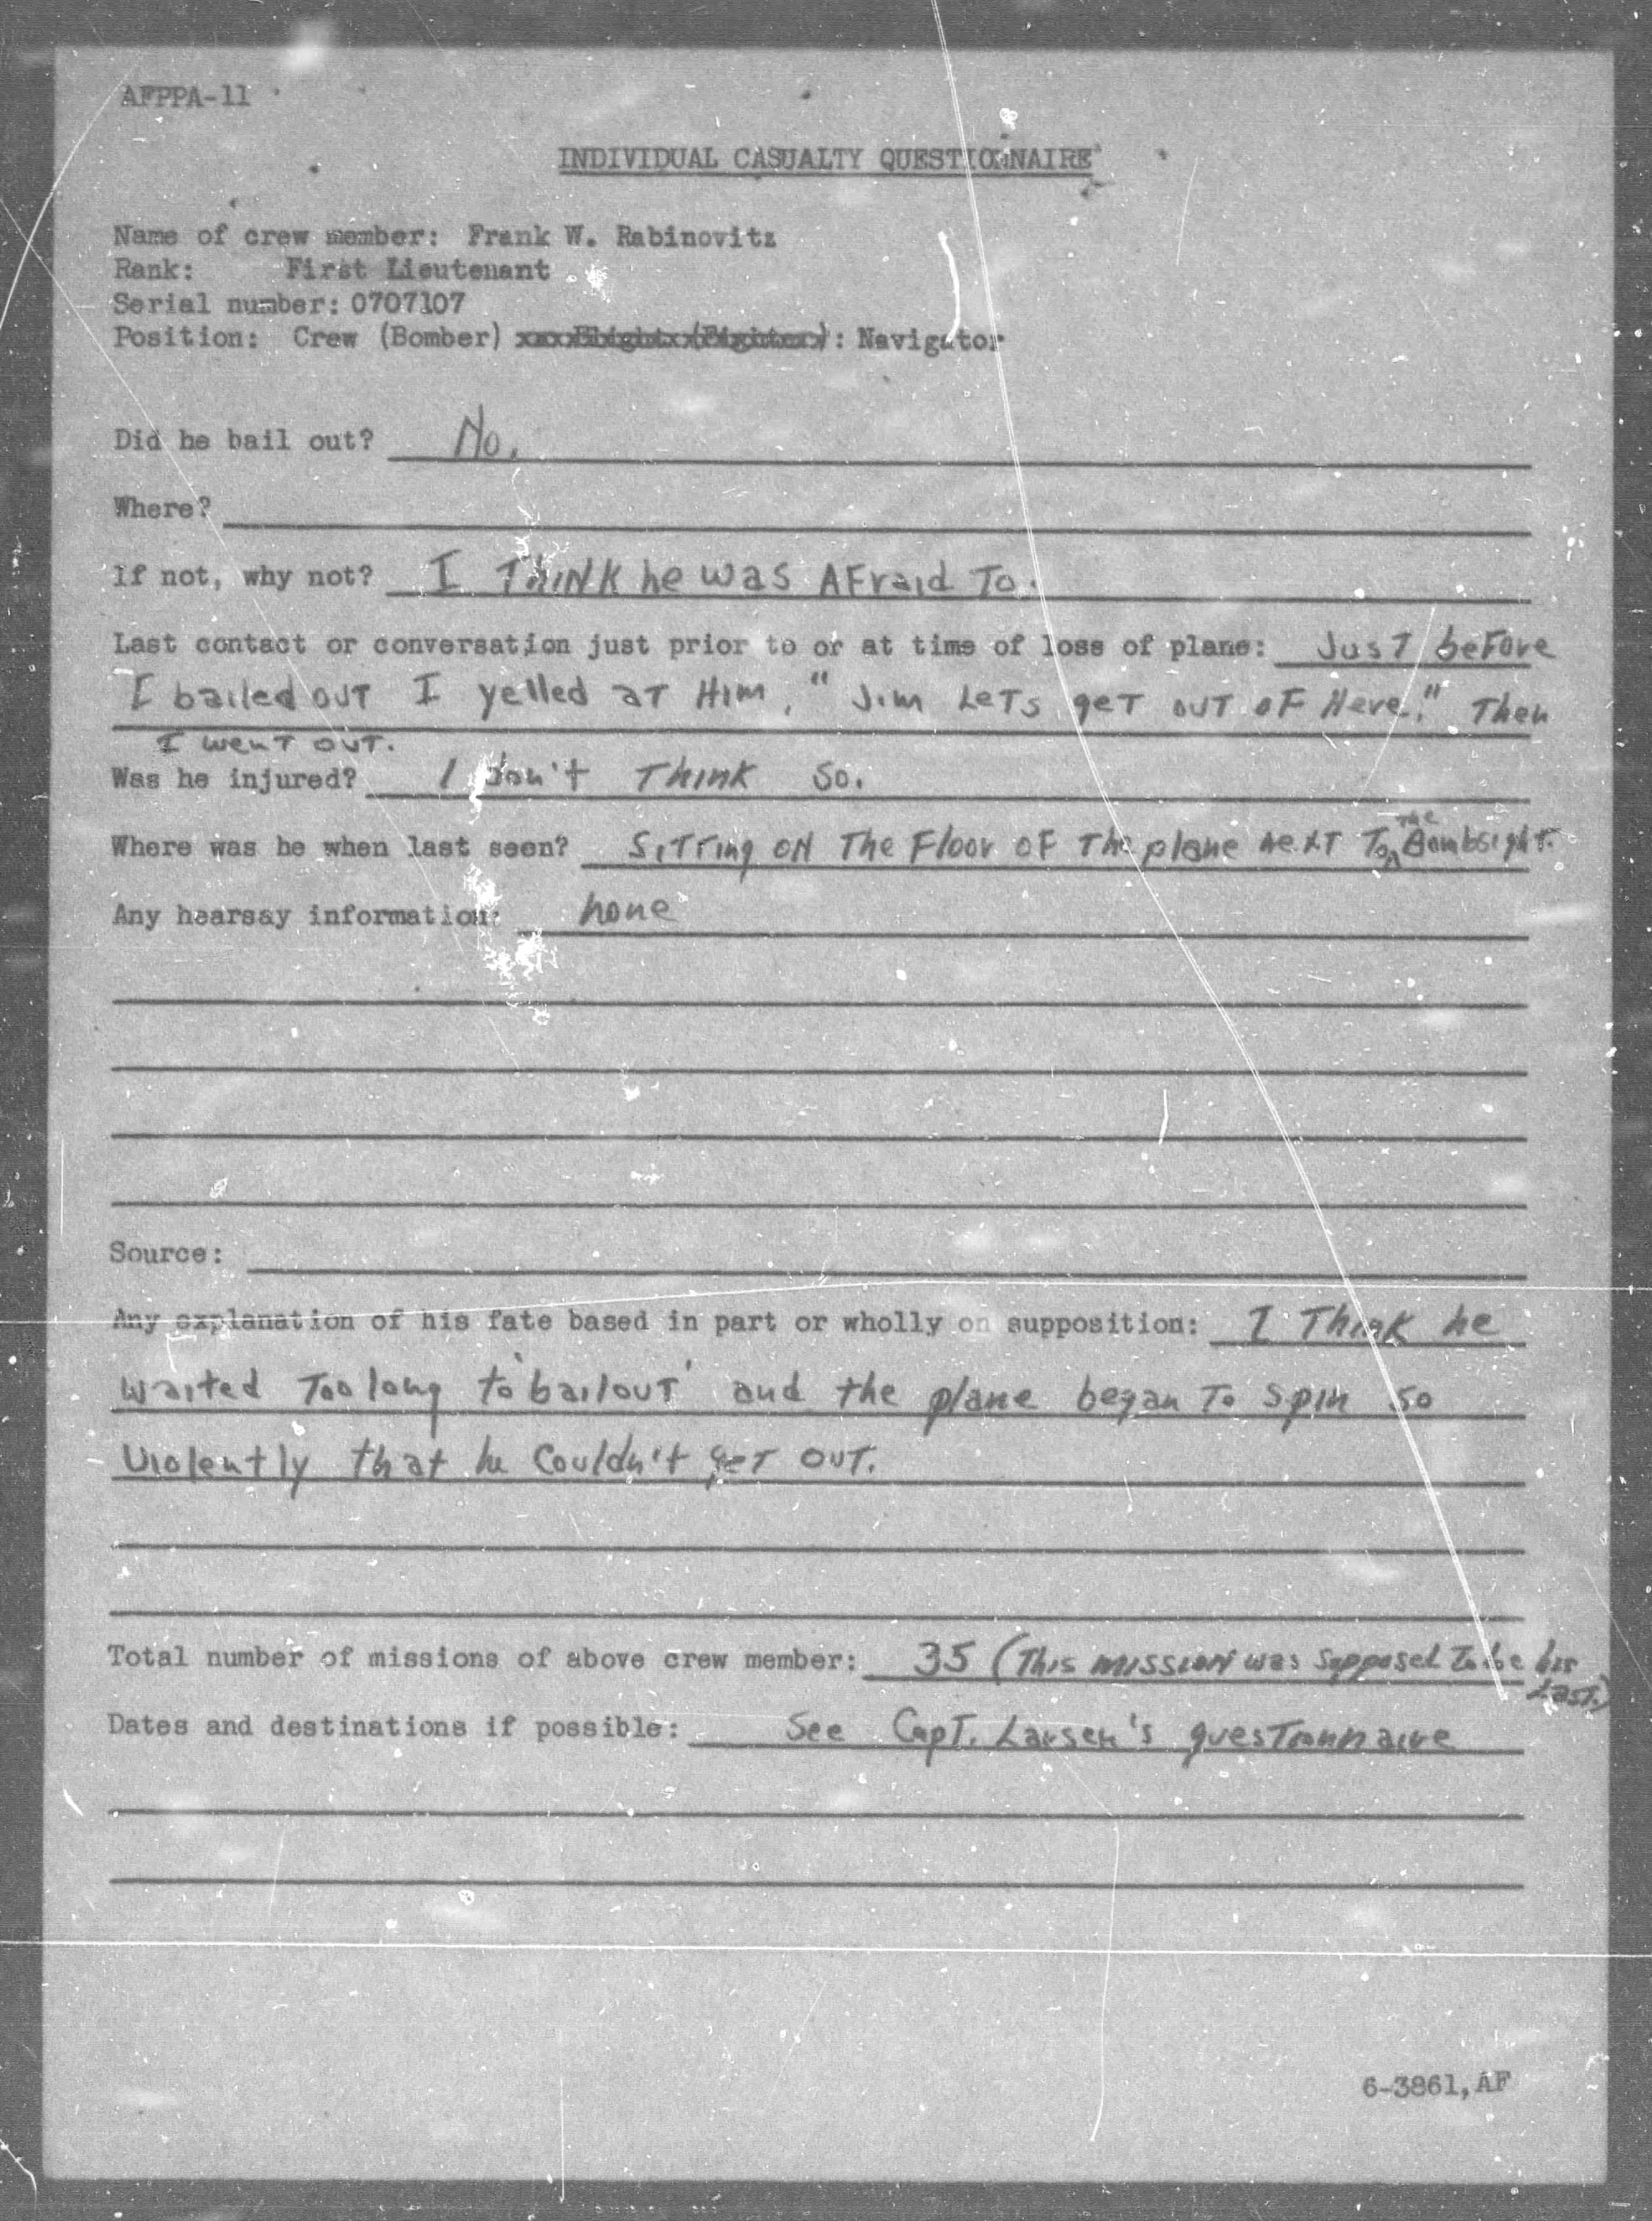 AFPPA-11
INDIVIDUAL CASUALTY QUESTIONNAIRE
Name of crew member: Frank W. Rabinovitz
Rank: First Lieutenant
Serial number: 0707107
Position: Crew (Bomber) : Navigator
Did he bail out? No.
Where?
If not, why not? I Think he was Afraid To.
Last contact or conversation just prior to or at time of loss of plane: Just before
I bailed out I yelled at Him, "Jim Lets get out of Here." Then
I went out.
Was he injured? I don't Think so.
Where was he when last seen? Sitting on The Floor of The plane next To The Bombsight.
Any hearsay information: none
Source:
Any explanation of his fate based in part or wholly on supposition: I Think he
waited Too long to 'bailout' and the plane began To spin so
Violently that he Couldn't get out.
Total number of missions of above crew member: 35 (This mission was supposed To be his
Last.)
Dates and destinations if possible: See Capt. Larsen's questionnaire
6-3861, AF